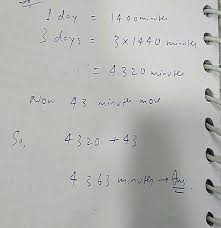 1 day = 1440 minutes
3 days = 3x1440 minutes
= 4320 minutes
Now 43 minutes more
So, 4320 + 43
4363 minutes → Ans